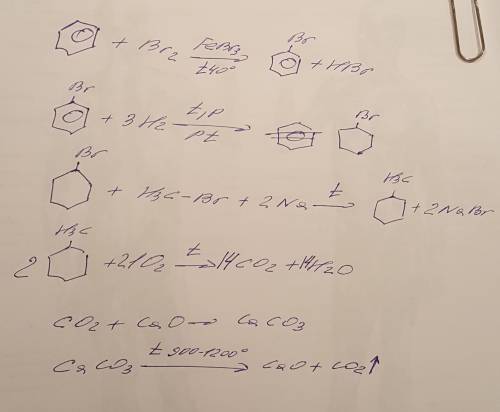 + Br2 FeBr3 t40° Br + HBr
Br + 3H2 t,p Pt Br
Br + H3C-Br + 2Na t H3C + 2NaBr
2 H3C + 21O2 t 14CO2 + 14H2O
CO2 + CaO → CaCO3
CaCO3 t 900-1200° CaO + CO2↑